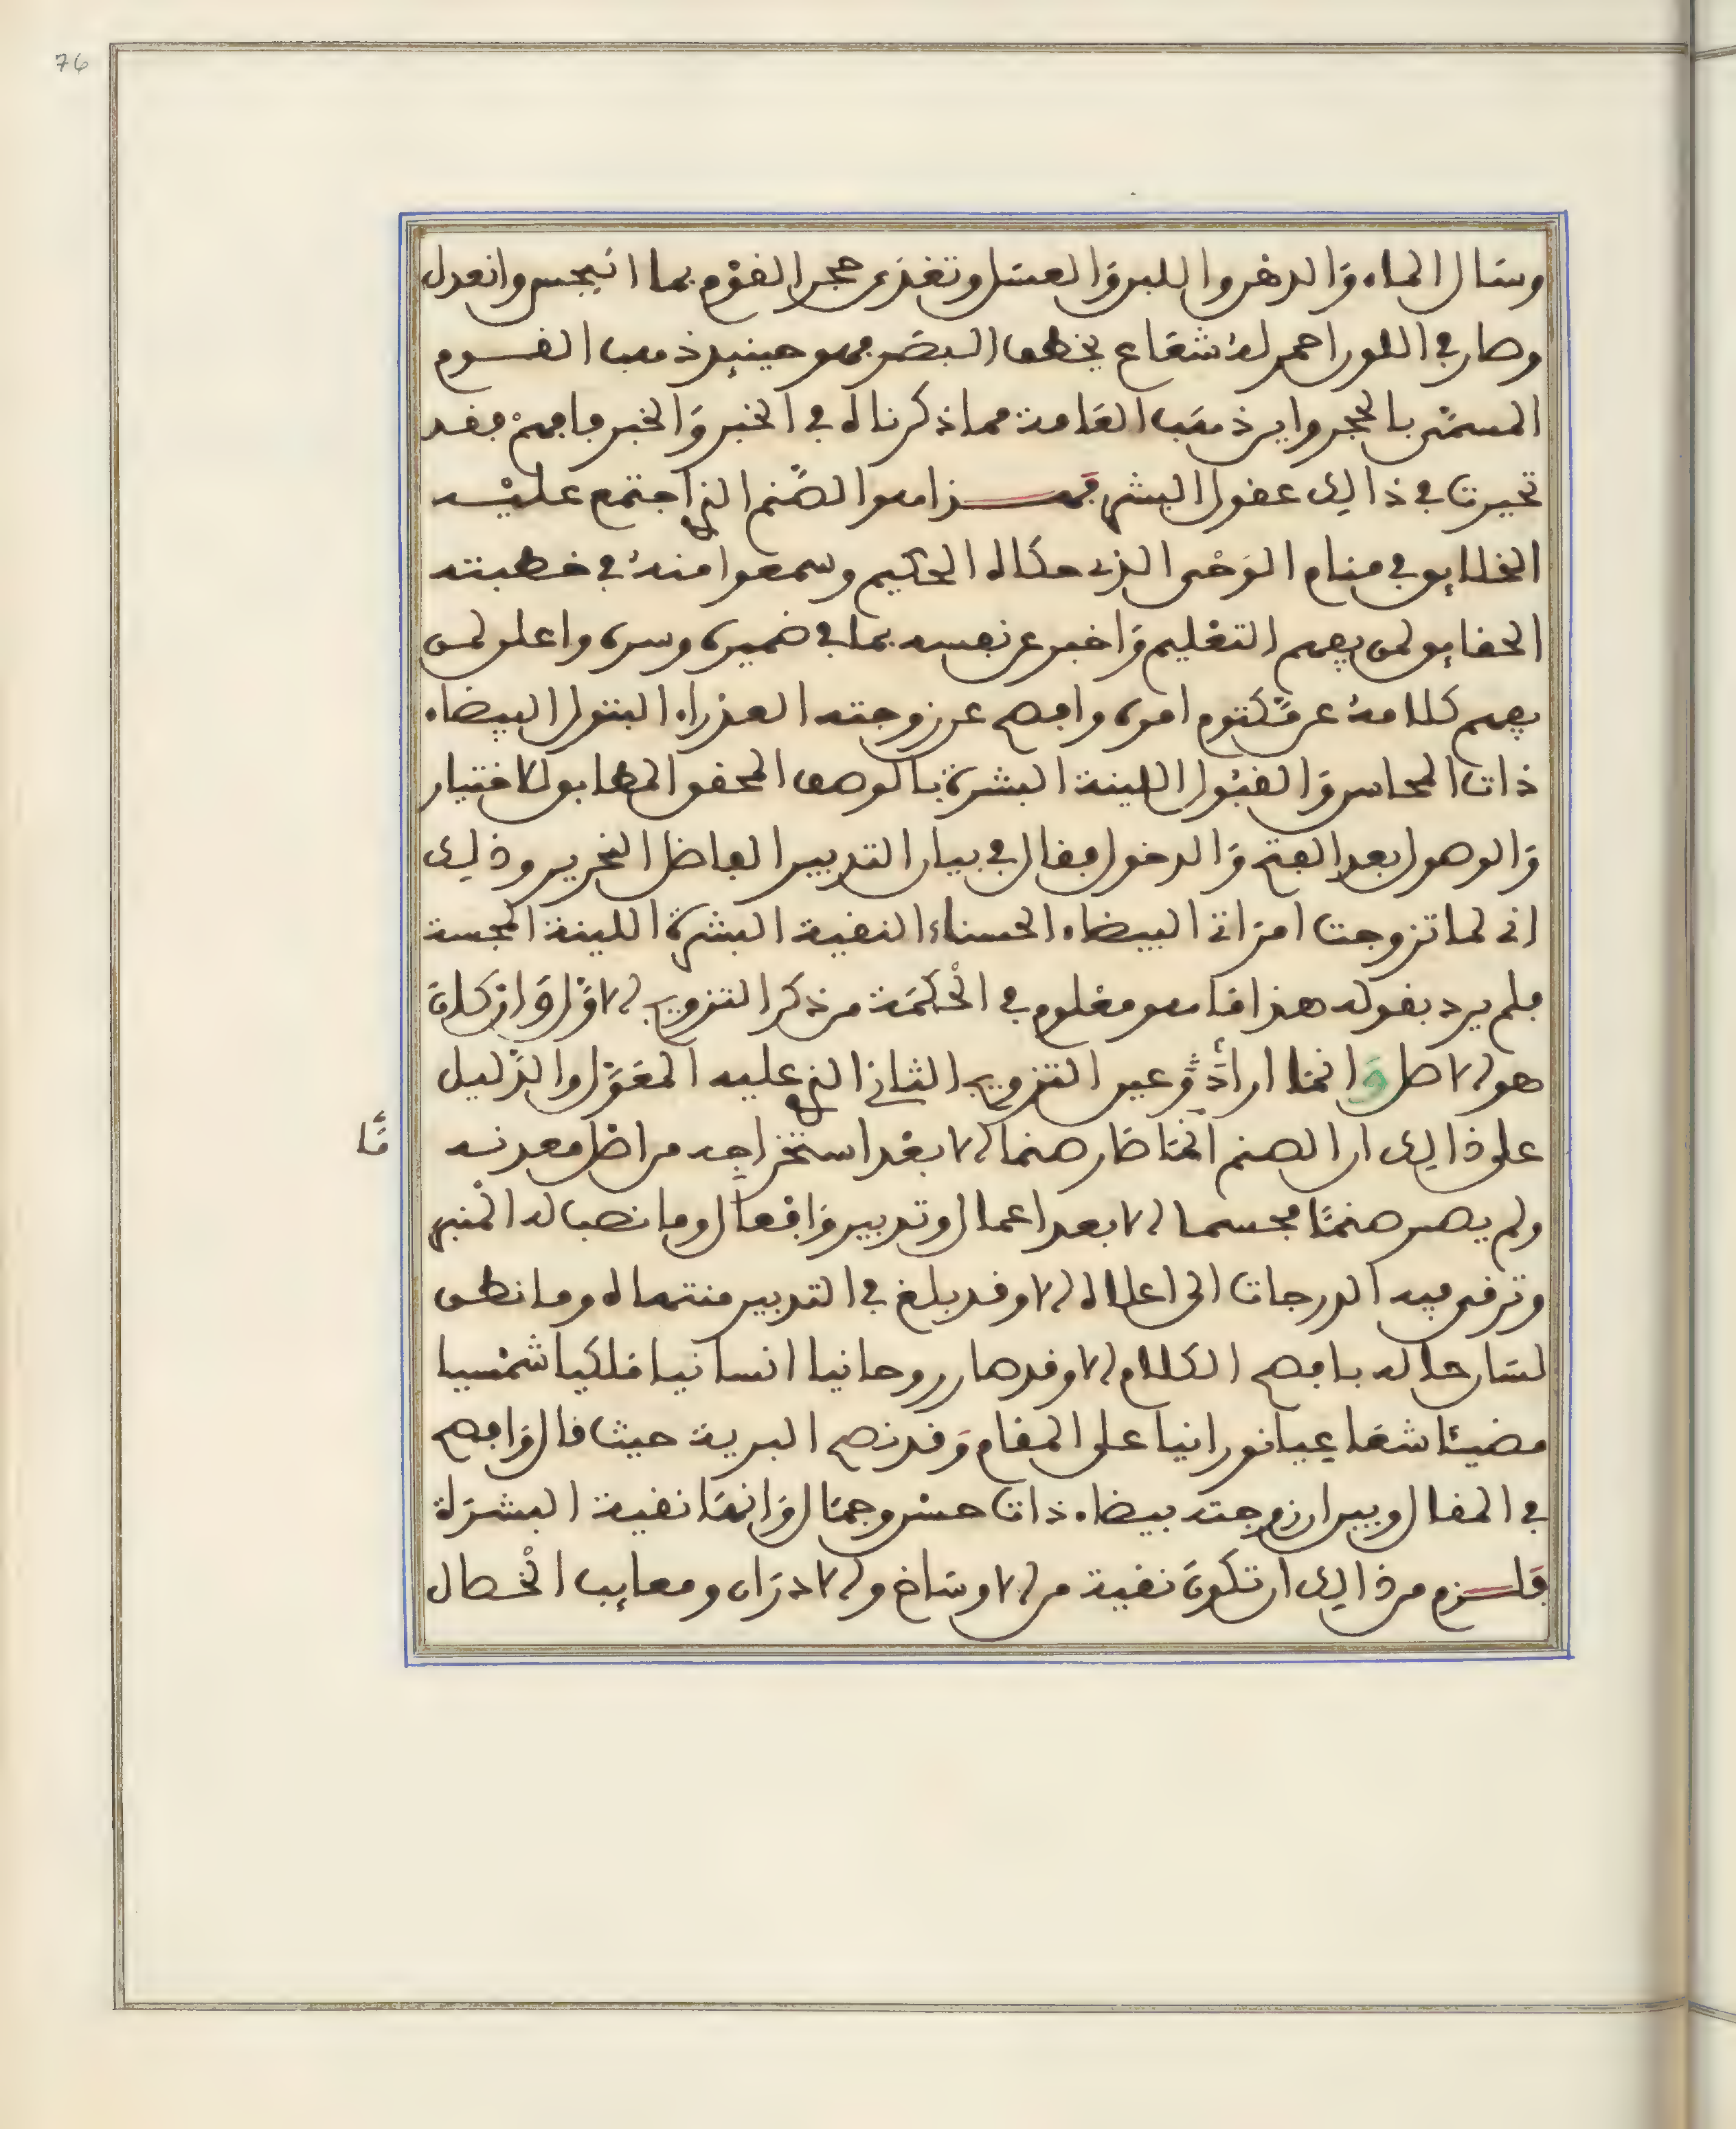 76
وسال الماء والدهن واللبن والعسل وتغذى حجر القوم بما انبجس وانعدل
وصار في اللون احمر له شعاع يخطف البصر فهو حينيذ ذهب القوم
المسمى بالحجر واين ذهب العامة مما ذكرناه في الخبر والخبر فافهم فقد
تحيرت في ذالك عقول البشر فهذا هو الصنم الذي اجتمع عليه
الخلايق في منام الوحي الذي حكاه الحكيم وسمعوا منه في خطبته
الحقايق لمن يفهم التعليم واخبر عن نفسه بما في ضميره وسره واعلن لمن
يفهم كلامه عن مكتوم امره وافصح عن زوجته العذراء البتول البيضاء
ذات المحاسن والقبول اللينة البشرة بالوصف المحقق المطابق لاختيار
والوصول بعد الفتح والدخول فقال في بيان التدبير الفاضل النحرير وذلك
اني لما تزوجت امراتي البيضاء الحسناء النقية البشرة اللينة المجسة
فلم يرد بقوله هذا ما هو معلوم في الحكمة من ذكر التزويج الاول وان كان
هو الاصل وانما اراد عين التزويج الثاني الذي عليه المعول والدليل
على ذالك ان الصنم انما صار صنما الا بعد استخراجه من ارض معدنه
ما
ولم يصر صنما مجسما الا بعد اعمال وتدبير وافعال وما نصب له المنبر
وترقى فيه الدرجات الى اعلاه الا وقد بلغ في التدبير منتهاه وما نطق
لسان حاله بافصح الكلام الا وقد صار روحانيا انسانيا فلكيا شمسيا
مضيئا شعاعيا نورانيا على المقام وقد نصح البرية حيث قال وافصح
في المقال وبين ان زوجته بيضاء ذات حسن وجمال وانها نقية البشرة
فلزم من ذالك ان تكون نقية من الاوساخ والادران ومعايب الخصال